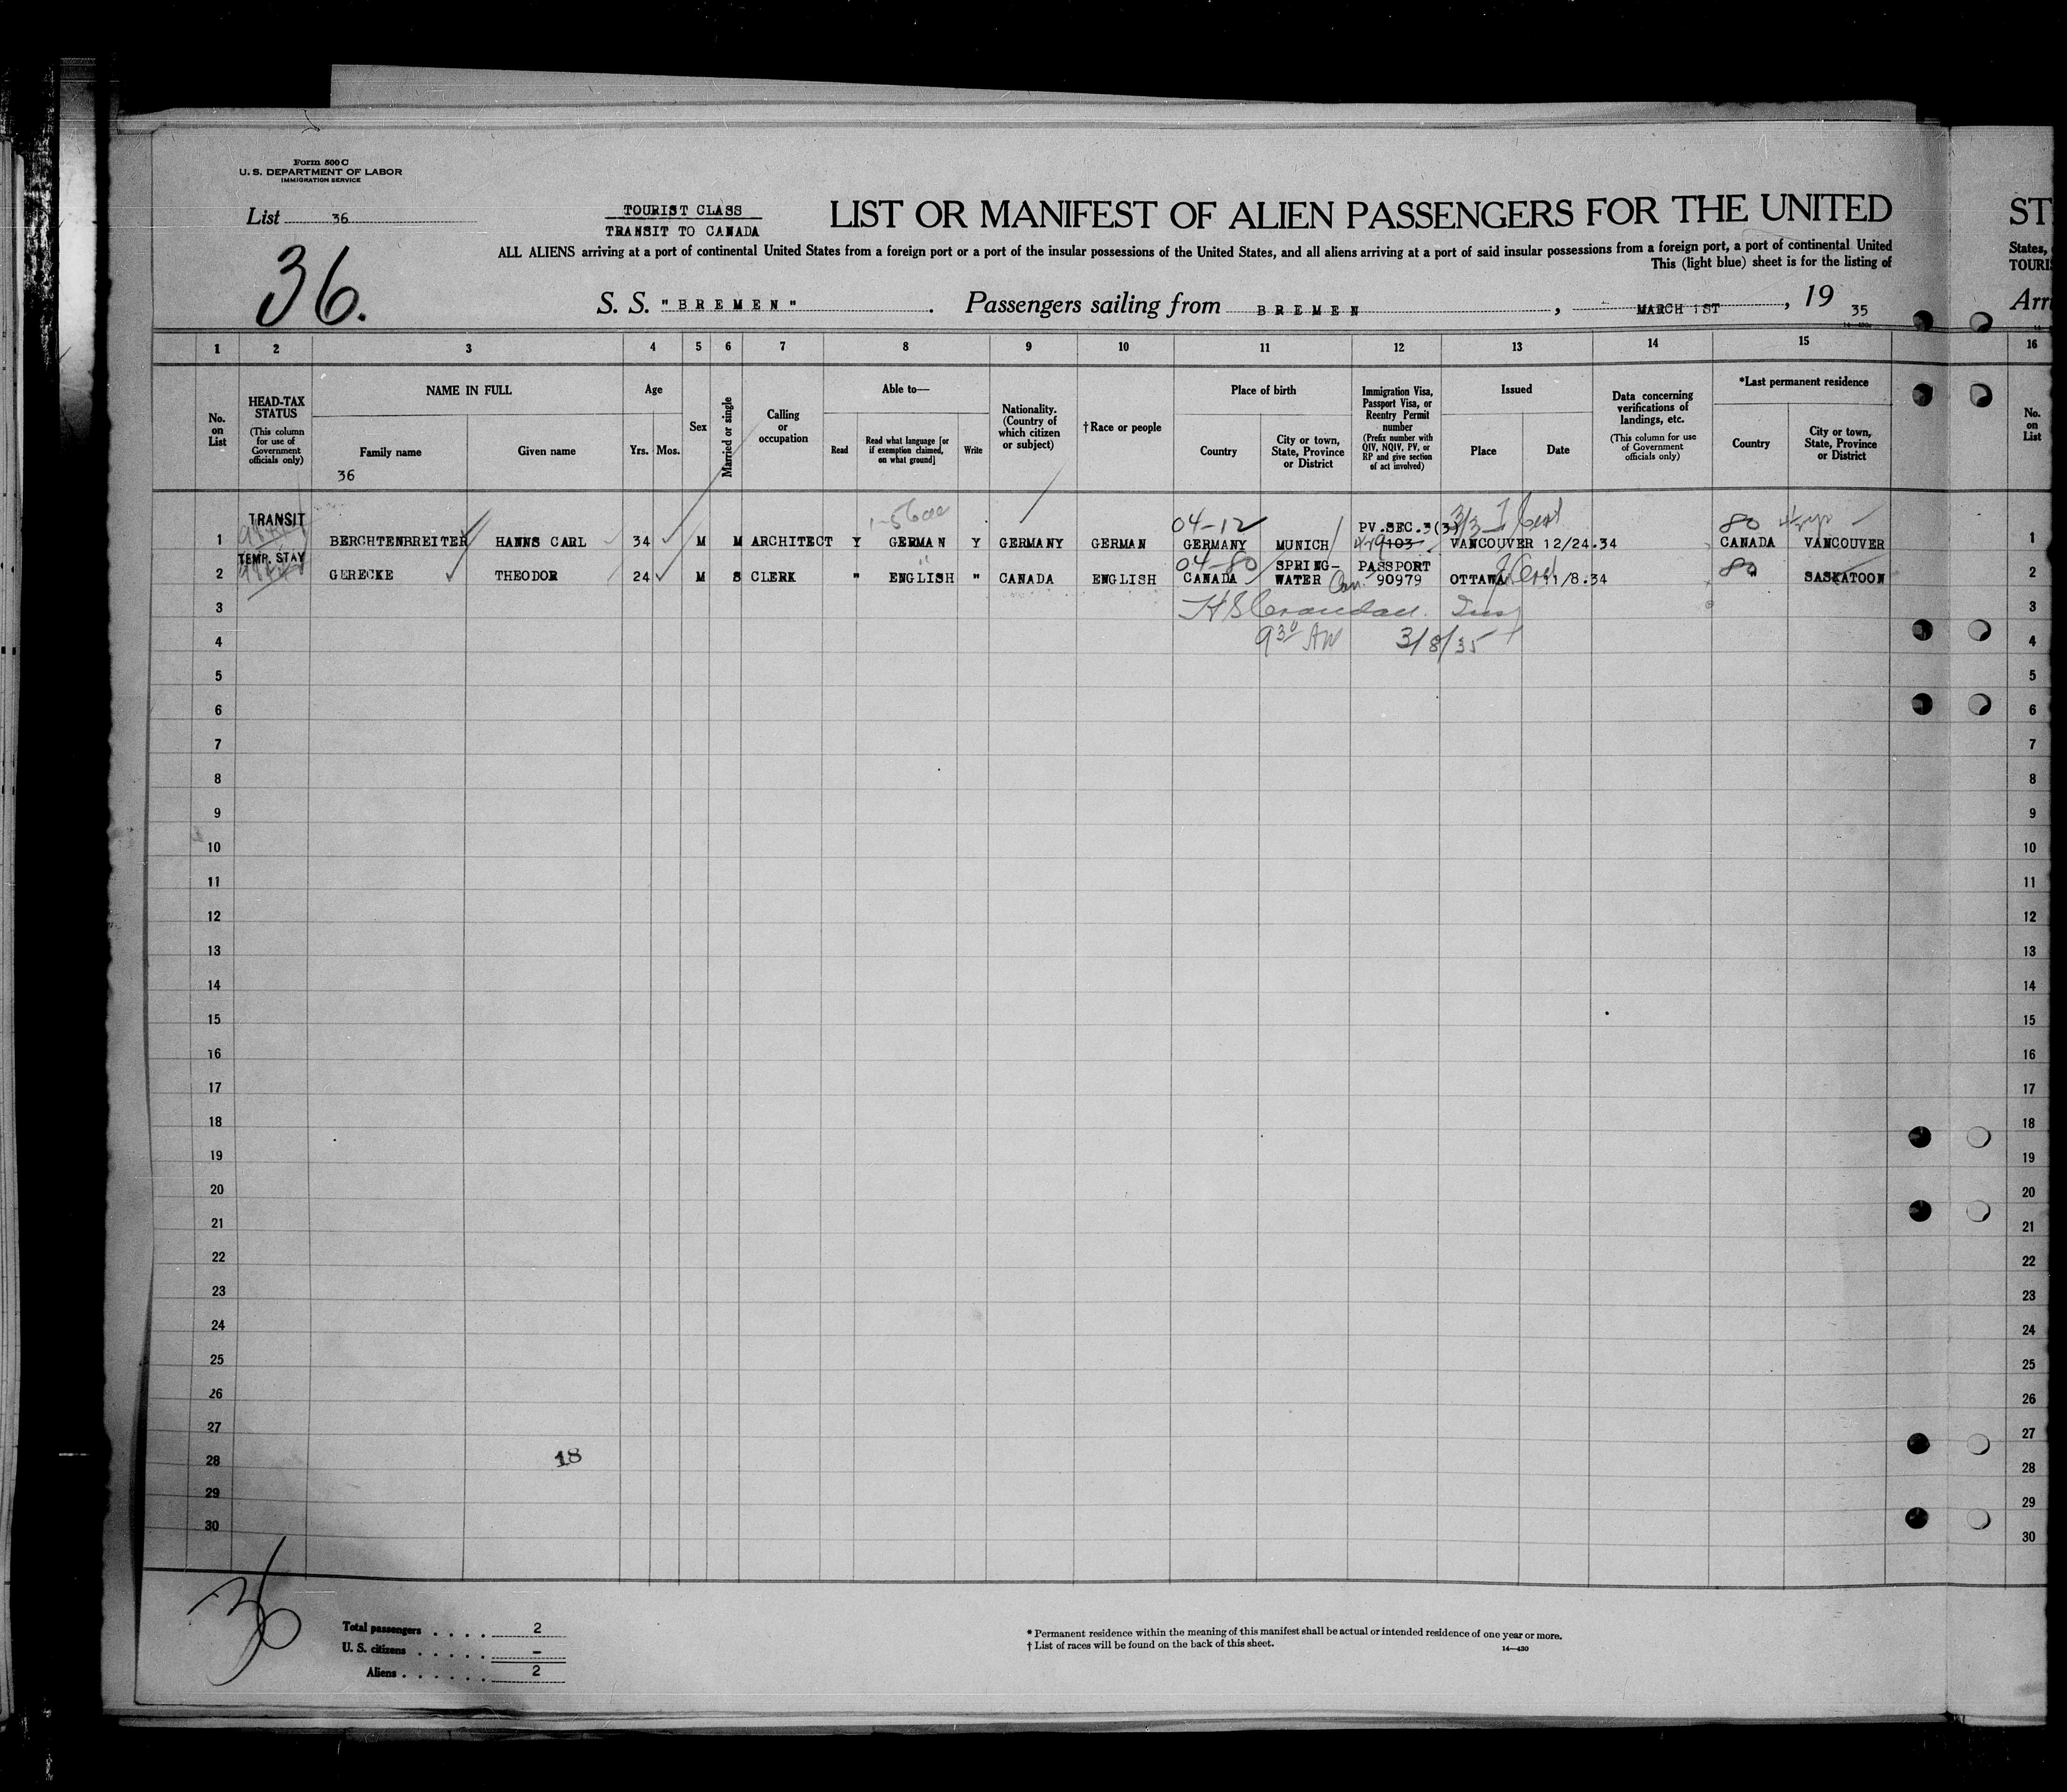 Form 500 C
U. S. DEPARTMENT OF LABOR
IMMIGRATION SERVICE
List 36
36.
TOURIST CLASS
TRANSIT TO CANADA
LIST OR MANIFEST OF ALIEN PASSENGERS FOR THE UNITED
ST
ALL ALIENS arriving at a port of continental United States from a foreign port or a port of the insular possessions of the United States, and all aliens arriving at a port of said insular possessions from a foreign port, a port of continental United
States,
This (light blue) sheet is for the listing of
TOURI
S. S. "BREMEN". Passengers sailing from BREMEN, MARCH 1ST, 19 35
Arr
1 2 3 4 5 6 7 8 9 10 11 12 13 14 15 16
No. on List
HEAD-TAX STATUS (This column for use of Government officials only)
NAME IN FULL
Family name
Given name
36
Age
Yrs. Mos.
Sex
Married or single
Calling or occupation
Able to—
Read
Read what language [or if exemption claimed, on what ground]
Write
Nationality. (Country of which citizen or subject)
†Race or people
Place of birth
Country
City or town, State, Province or District
Immigration Visa, Passport Visa, or Reentry Permit number (Prefix number with QIV, NQIV, PV, or RP and give section of act involved)
Issued
Place
Date
Data concerning verifications of landings, etc. (This column for use of Government officials only)
*Last permanent residence
Country
City or town, State, Province or District
No. on List
TRANSIT 04-12 PV.SEC.3(3) 80
1 BERCHTENBREITER HANNS CARL 34 M M ARCHITECT Y GERMAN Y GERMANY GERMAN GERMANY MUNICH 103 VANCOUVER 12/24.34 CANADA VANCOUVER 1
TEMP. STAY 04-80 SPRING- PASSPORT 80
2 GERECKE THEODOR 24 M S CLERK " ENGLISH " CANADA ENGLISH CANADA WATER Can. 90979 OTTAWA 11/8.34 " SASKATOON 2
3 H S Crandall Insp 3
4 9 30 AM 3/8/35 4
5 5
6 6
7 7
8 8
9 9
10 10
11 11
12 12
13 13
14 14
15 15
16 16
17 17
18 18
19 19
20 20
21 21
22 22
23 23
24 24
25 25
26 26
27 27
28 18 28
29 29
30 30
36
Total passengers . . . . 2
U. S. citizens . . . . . –
Aliens . . . . . . 2
* Permanent residence within the meaning of this manifest shall be actual or intended residence of one year or more.
† List of races will be found on the back of this sheet.
14—430